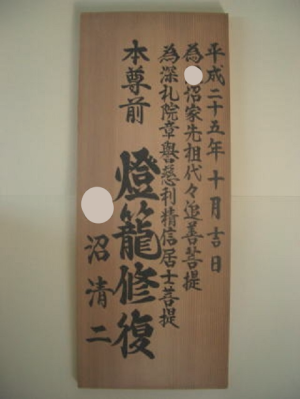 平成二十五年十月吉日
為 沼家先祖代々追善菩提
為深礼院章與慈利精信居士菩提
本尊前 燈籠修復
沼清二